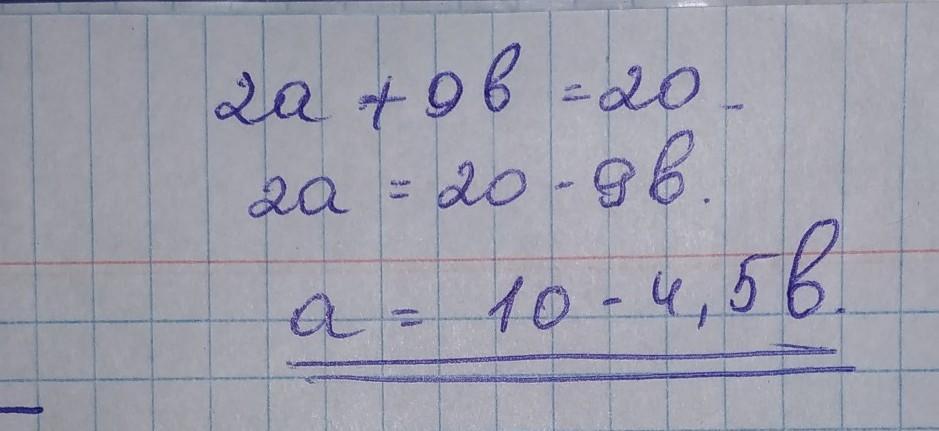 2a + 9в = 20
2a = 20 - 9в.
a = 10 - 4,5в.